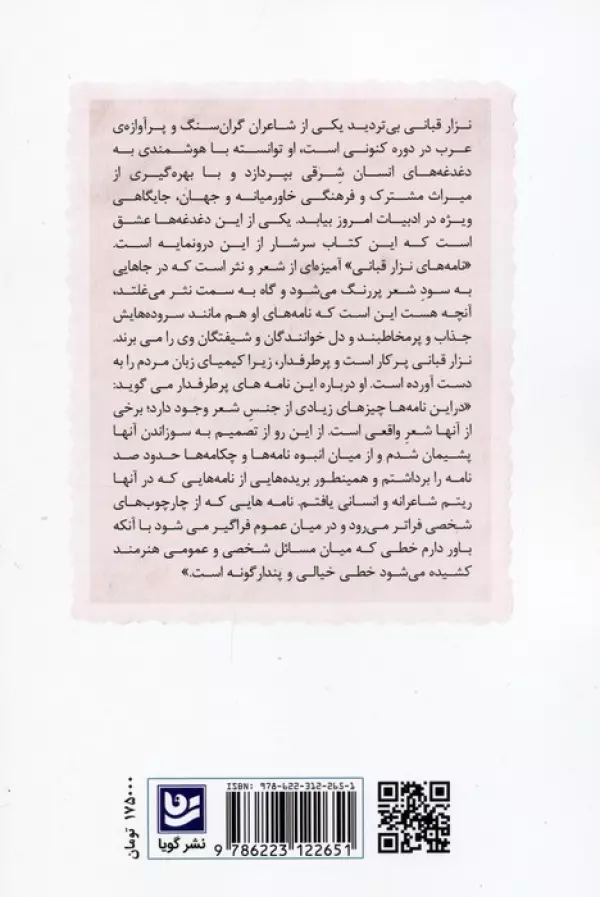 نزار قبانی بی‌تردید یکی از شاعران گران‌سنگ و پرآوازه‌ی
عرب در دوره کنونی است، او توانسته با هوشمندی به
دغدغه‌های انسان شرقی بپردازد و با بهره‌گیری از
میراث مشترک و فرهنگی خاورمیانه و جهان، جایگاهی
ویژه در ادبیات امروز بیابد. یکی از این دغدغه‌ها عشق
است که این کتاب سرشار از این درونمایه است.
«نامه‌های نزار قبانی» آمیزه‌ای از شعر و نثر است که در جاهایی
به سودِ شعر پررنگ می‌شود و گاه به سمت نثر می‌غلتد،
آنچه هست این است که نامه‌های او هم مانند سروده‌هایش
جذاب و پرمخاطبند و دل خوانندگان و شیفتگان وی را می برند.
نزار قبانی پرکار است و پرطرفدار، زیرا کیمیای زبان مردم را به
دست آورده است. او درباره این نامه های پرطرفدار می گوید:
«دراین نامه‌ها چیزهای زیادی از جنسِ شعر وجود دارد؛ برخی
از آنها شعرِ واقعی است. از این رو از تصمیم به سوزاندن آنها
پشیمان شدم و از میان انبوه نامه‌ها و چکامه‌ها حدود صد
نامه را برداشتم و همینطور بریده‌هایی از نامه‌هایی که در آنها
ریتم شاعرانه و انسانی یافتم. نامه هایی که از چارچوب‌های
شخصی فراتر می‌رود و در میان عموم فراگیر می شود با آنکه
باور دارم خطی که میان مسائل شخصی و عمومی هنرمند
کشیده می‌شود خطی خیالی و پندارگونه است.»
ISBN: 978-622-312-265-1
9 786223 122651
نشر گویا
۱۷۵۰۰۰ تومان